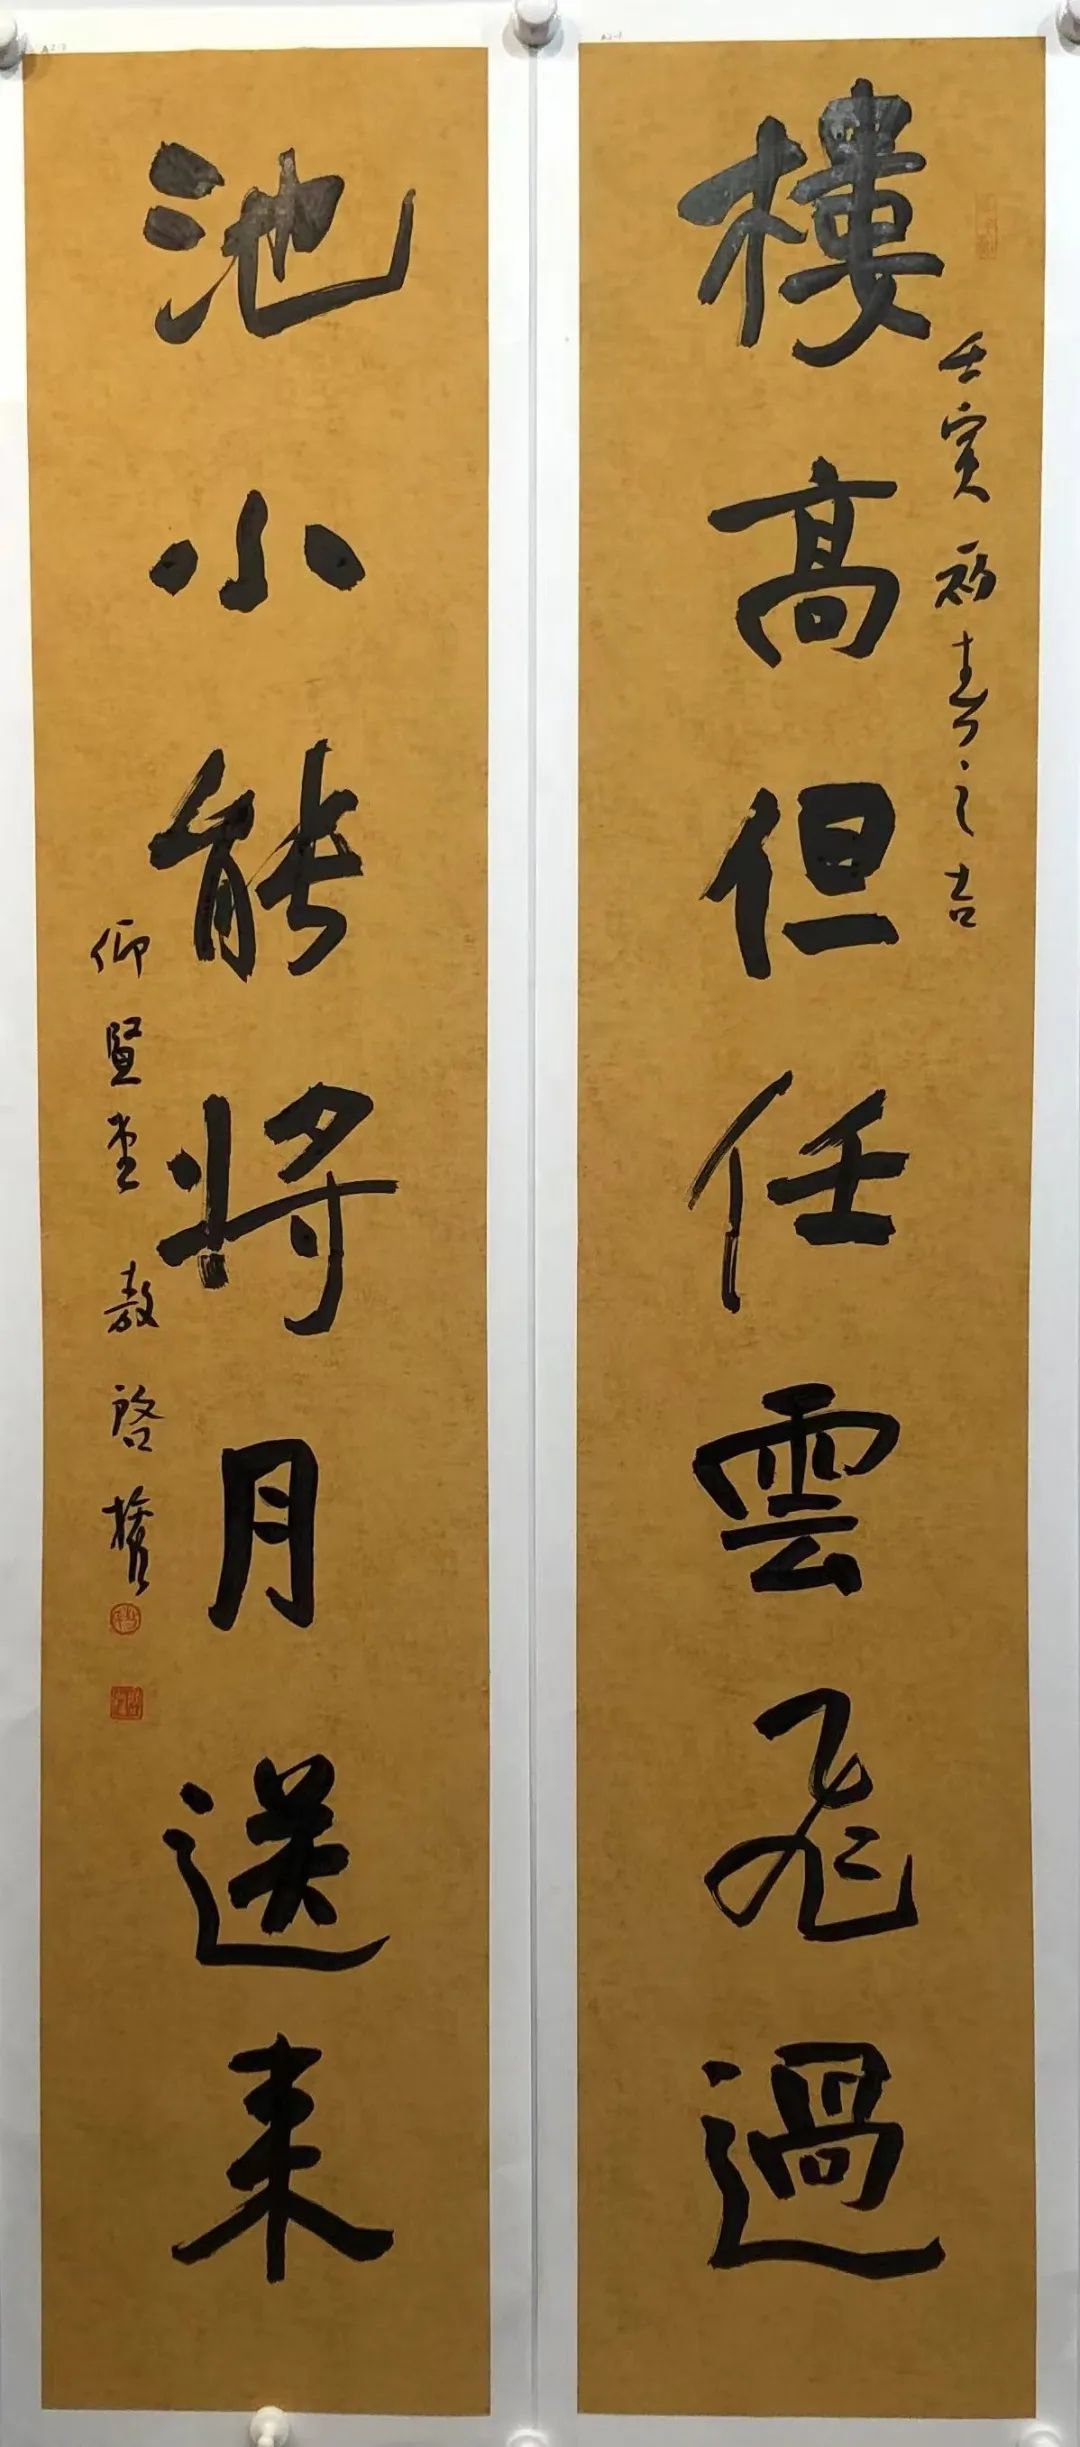 樓高但任雲飛過
壬寅初春之吉
池小能將月送來
仰賢堂敖啓權